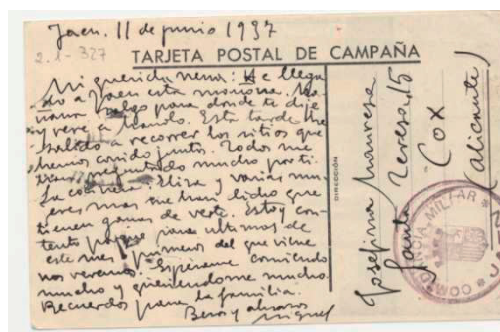 Jaen. 11 de junio 1937
2.1-327
TARJETA POSTAL DE CAMPAÑA
Mi querida nena: He llega
do a Jaen esta mañana. Ma-
ñana salgo para donde te dije
y veré a Manolo. Esta tarde he
salido a recorrer los sitios que
hemos corrido juntos. Todos me
han preguntado mucho por ti:
La cocinera Eliza y varias mu-
jeres mas que me han dicho que
tienen ganas de verte. Estoy con-
tento porque para ultimos de
este mes o primeros del que viene
nos veremos. Esperame comiendo
mucho y queriendome mucho.
Recuerdos para la familia.
Besos y abrazos
Miguel
DIRECCIÓN
Josefina Manresa
Santa Teresa, 15
Cox
(Alicante)
COMANDANCIA MILITAR